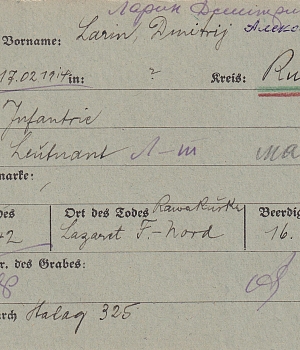 Ларин Дмитри
Vorname: Larin, Dmitrij Алекс
17.02.1914 in: ? Kreis: Ru
Infantrie
Leutnant Л-т
marke:
des Ort des Todes Rawa Ruska Beerdig
42 Lazaret F.-Nord 16.
r. des Grabes:
urch Stalag 325